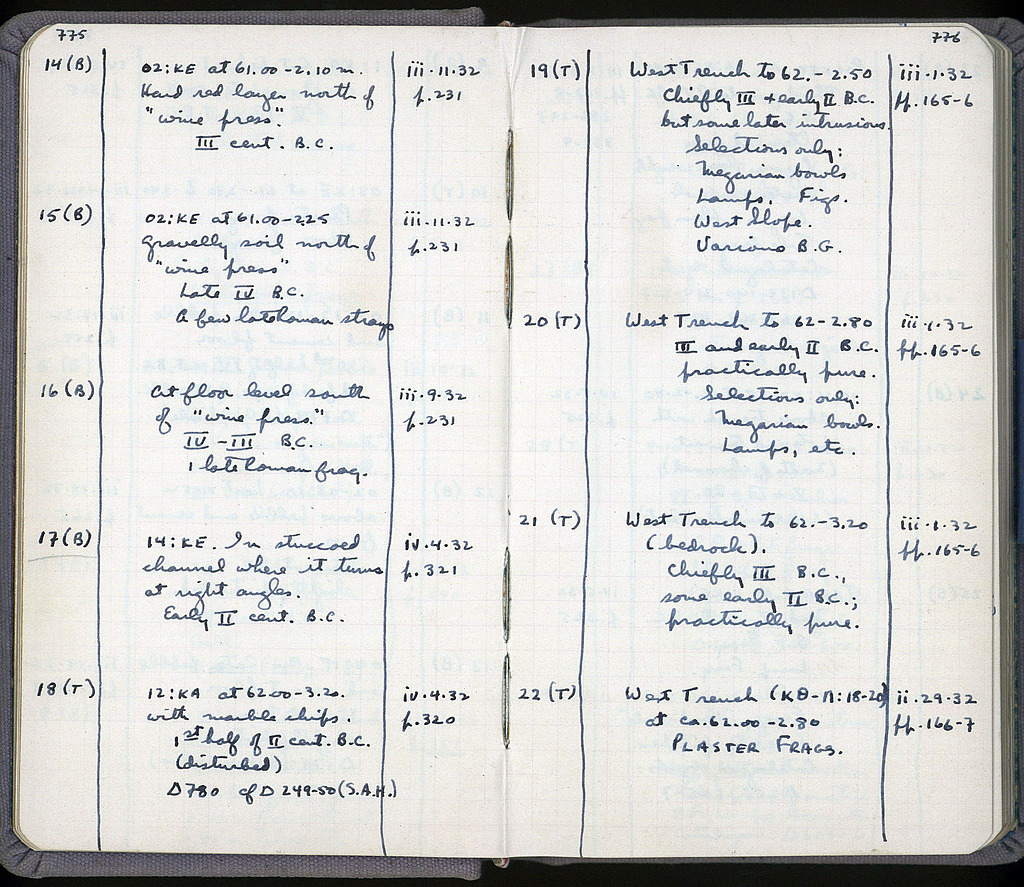 775
14 (B) 02:KE at 61.00-2.10 m. iii.11.32
Hard red layer north of p.231
"wine press".
III cent. B.C.
15 (B) 02:KE at 61.00-2.25 iii.11.32
gravelly soil north of p.231
"wine press"
Late IV B.C.
A few late Roman strays
16 (B) At floor level south iii.9.32
of "wine press." p.231
IV - III B.C.
1 late Roman frag.
17 (B) 14:KE. In stuccoed iv.4.32
channel where it turns p.321
at right angles.
Early II cent. B.C.
18 (T) 12:KA at 62.00-3.20. iv.4.32
with marble chips. p.320
1st half of II cent. B.C.
(disturbed)
Δ780 cf Δ 249-50 (S.A.H.)
776
19 (T) West Trench to 62.-2.50 iii.1.32
Chiefly III + early II B.C. pp.165-6
but some later intrusions.
Selections only:
Megarian bowls
Lamps. Figs.
West Slope.
Various B.G.
20 (T) West Trench to 62-2.80 iii.1.32
III and early II B.C. pp.165-6
practically pure.
Selections only:
Megarian bowls.
Lamps, etc.
21 (T) West Trench to 62.-3.20 iii.1.32
(bedrock). pp.165-6
Chiefly III B.C.,
some early II B.C.;
practically pure.
22 (T) West Trench (KΘ-Λ:18-20) ii.29.32
at ca. 62.00-2.80 pp.166-7
PLASTER FRAGS.